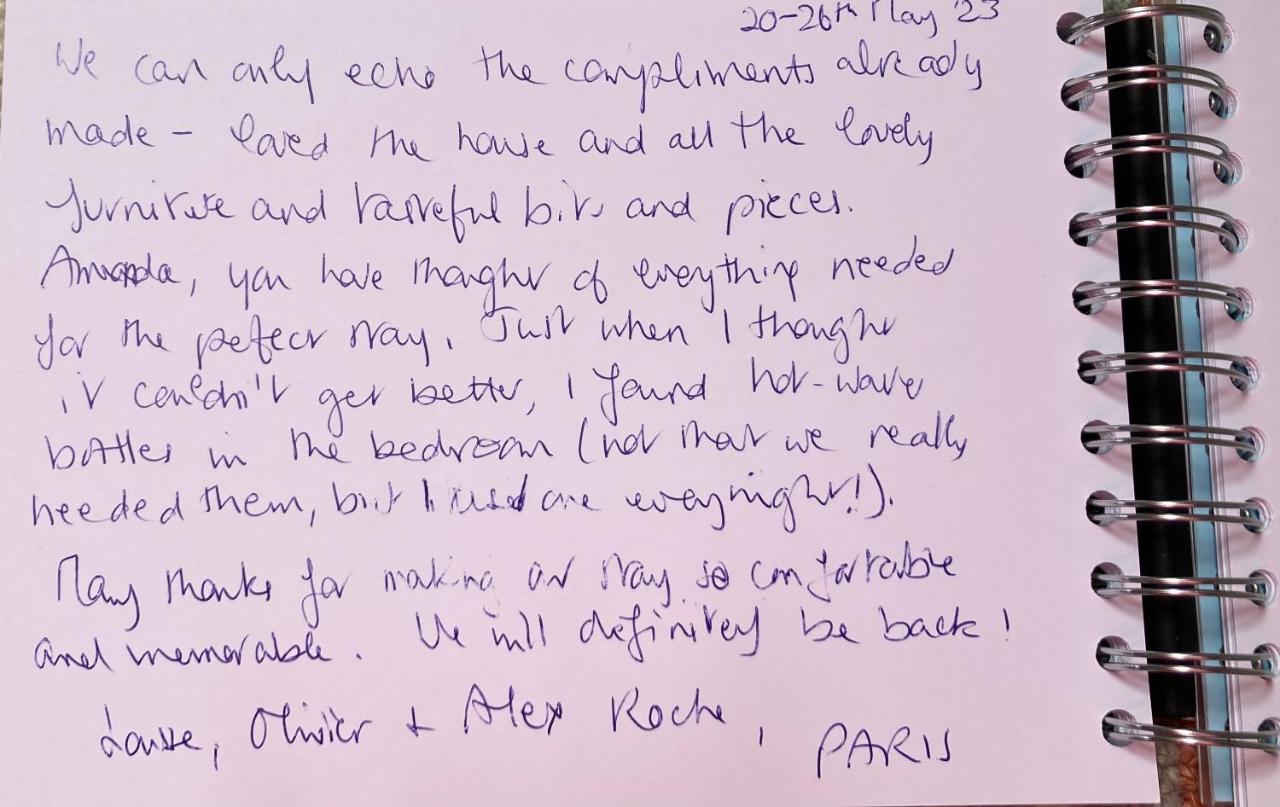 20-26th May '23
We can only echo the compliments already
made - loved the house and all the lovely
furniture and tasteful bits and pieces.
Amanda, you have thought of everything needed
for the pefect stay. Just when I thought
it couldn't get better, I found hot-wave
bottles in the bedroom (not that we really
needed them, but I used one every night!).
Many thanks for making our stay so comfortable
and memorable. We will definitely be back!
Louise, Olivier + Alex Roche, PARIS